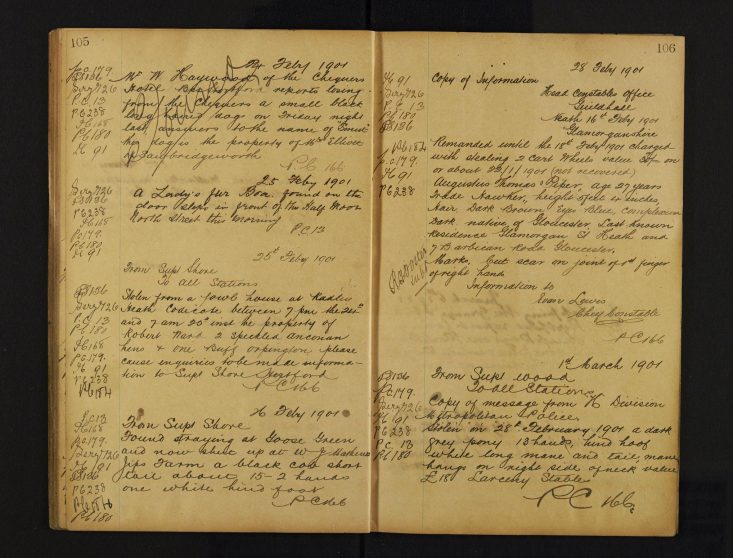 105
24 Feby 1901
Mr W. Haywood of the Chequers
Hotel reports losing
from the Chequers a small black
long haired dog on Friday night
last, answers to the name of
the dog is the property of Mrs Elliott
Sawbridgeworth
PC 166
25 Feby 1901
A Lady's fur Boa. found on the
door steps in front of the Half Moon
North Street this morning
PC 13
25th Feby 1901
From Supt Shore
To all Stations
Stolen from a fowl house at
Heath Codicote between 7 pm the 24th
and 7 am 25th inst the property of
Robert Ward 2 speckled anconan
hens & one Buff orpington please
cause inquiries to be made informa-
tion to Supt Shore Hertford
PC 166
26 Feby 1901
From Supt Shore
Found straying at Goose Green
and now shut up at W J
Farm a black cob short
tail about 15-2 hands
one white hind foot
PC 166
PC 179
PS 136
Serg 726
PC 13
PC 238
PC 180
H 91
Serg 726
PS 136
PC 238
PC 179
PC 180
H 91
PS 136
Serg 726
PC 13
PC 180
PC 179
H 91
PC 238
PC 13
PC 179
Serg 726
H 91
PS 136
PC 238
PC 180
106
28 Feby 1901
Copy of Information
Head Constables Office
Guildhall
Neath 16th Feby 1901
Glamorganshire
Remanded until the 18th Feby 1901 charged
with stealing 2 Cart Wheels value on
or about 22/1/1901 (not recovered)
Augustus Thomas Piper, age 27 years
trade Hawker, height 5 feet inches,
hair Dark Brown Eyes Blue, complexion
Dark native of Gloucester. Last known
Residence Glamorgan St Neath and
7 Barbican Road Gloucester.
Marks, Cut scar on joint of 1st finger
of right hand
Information to
Evan Lewis
Chief Constable
PC 166
1st March 1901
From Supt Wood
To all Stations
Copy of message from K Division
Metropolitan Police.
Stolen on 28th February 1901 a dark
grey pony 13 hands, hind hoof
white long mane and tail, mane
hangs on right side of neck value
£18 Larceny Stable
PC 166
H 91
Serg 726
PC 13
PC 180
PS 136
PC 179
H 91
PC 238
PS 136
PC 179
Serg 726
H 91
PC 238
PC 13
PC 180